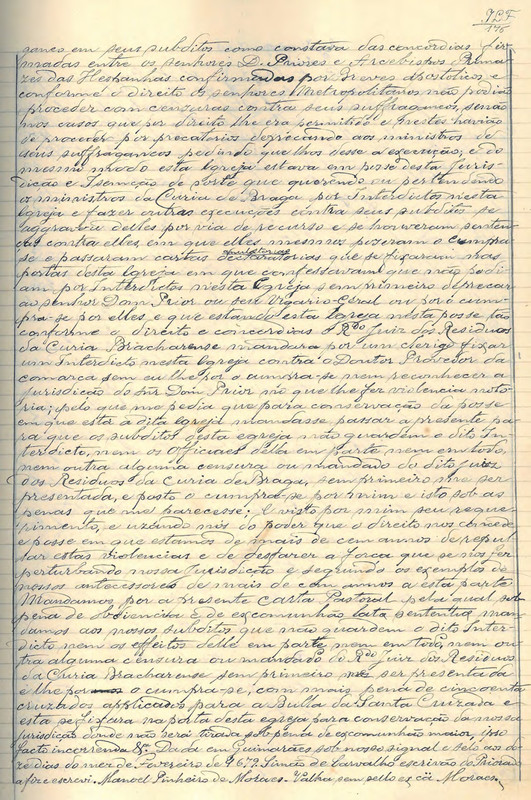 gance em seus subditos como constava das concordias fir-
madas entre os senhores D. Priores e Arcebispos Prima-
zes das Hespanhas confirmadas por Breves Apostolicos, e
conforme o direito os senhores Metropolitanos não podião
proceder com censuras contra seus suffraganeos, senão
nos casos que por direito lhe era permitido e nestes havião
de proceder por precatorios deprecando aos ministros de
seus suffraganeos pedindo que lhos desse a execução, e do
mesmo modo esta Igreja estava em posse desta Juris-
dicção e Isenção de sorte que querendo ou pertendendo
os ministros da Curia de Braga por Interdictos nesta
Igreja e fazer outras execuções contra seus subditos se
aggravou delles por via de recurso e se houveram senten-
ças contra elles, em que elles mesmos pozeram o cumpra-
se e passaram cartas que se fixaram nas
portas desta Igreja em que confessavam que não podi-
am por Interdictos nesta Igreja sem primeiro deprecar
ao senhor Dom Prior ou seu Vigario Geral ou pôr o cum-
pra-se por elles, e que estando esta Igreja nesta posse tão
conforme o direito e concordias o Rdo Juiz dos Residuos
da Curia Bracharense mandara por um clerigo fixar
um Interdicto nesta Igreja contra o Doutor Provedor da
comarca sem eu lhe por o cumpra-se nem reconhecer a
jurisdição do Snr Dom Prior no que lhe fez violencia noto-
ria; pelo que me pedia que para conservação da posse
em que está a dita Igreja mandasse passar a presente pa-
ra que os subditos desta egreja não guardem o dito In-
terdicto, nem os officiaes della em parte nem em todo,
nem outra alguma censura ou mandado do dito Juiz
dos Residuos da Curia de Braga, sem primeiro me ser
presentada, e posto o cumpra-se por mim e isto sob as
penas que me parecesse; E visto por mim seu reque-
rimento, e uzando nós do poder que o direito nos concede
e posse em que estamos de mais de cem annos de repul-
sar estas violencias e de desfazer a força que se nos fez
perturbando nossa Jurisdicção e segundo os exemplos de
nossos antecessores de mais de cem annos a esta parte
Mandamos por a presente Carta Pastoral pela qual sob
pena de obdiencia E de excomunhão lata sententia man-
damos aos nossos subditos que não guardem o dito Inter-
dicto nem os effeitos delle em parte nem em todo, nem ou-
tra alguma censura ou mandado do Rdo Juiz dos Residuos
da Curia Bracharense sem primeiro nos ser presentada
e lhe por o cumpra-se, com mais pena de cincoenta
cruzados applicados para a Bulla da Santa Cruzada e
esta se fixara na porta desta egreja para conservação da nossa
jurisdição donde não será tirada sob pena de excomunhão maior, ipso
facto incorrenda &ª. Dada em Guimarães sob nosso signal e sello aos do-
ze dias do mez de Fevereiro de 1679. Simão de Carvalho escrivão do Priorado
a fiz e escrevi. Manoel Pinheiro de Moraes. Valha sem sello ex cã Moraes.